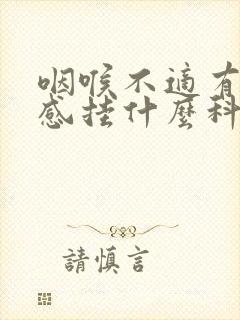 咽喉不適有
感挂什麽科
請慎言